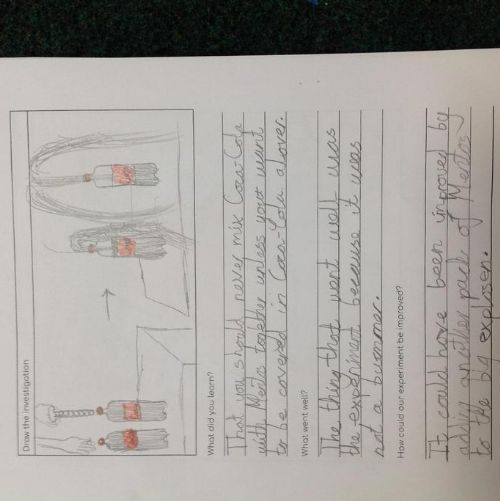 Draw the investigation
What did you learn?
That you should never mix Coca-Cola
with Mento together unless your want
to be covered in Coca-Cola alover.
What went well?
The thing that want well was
the experiment because it was
not a bummer.
How could our experiment be improved?
It could have been improved by
adding another pack of Mentos
to the big explosen.